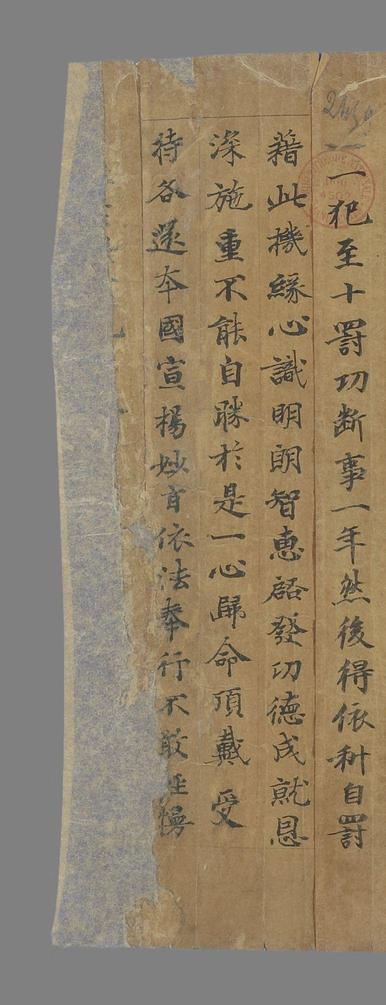 一犯至十罸切断事一年然後得依科自罸
藉此機縁心識明朗智恵啓發功德成就恩
深施重不能自勝於是一心歸命頂戴受
持各還本國宣楊妙言依法奉行不敢輕慢